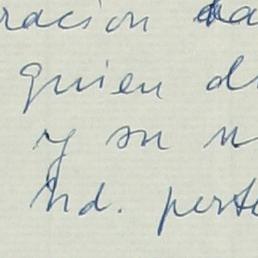 ración
quien d
y su n
Ud. perte